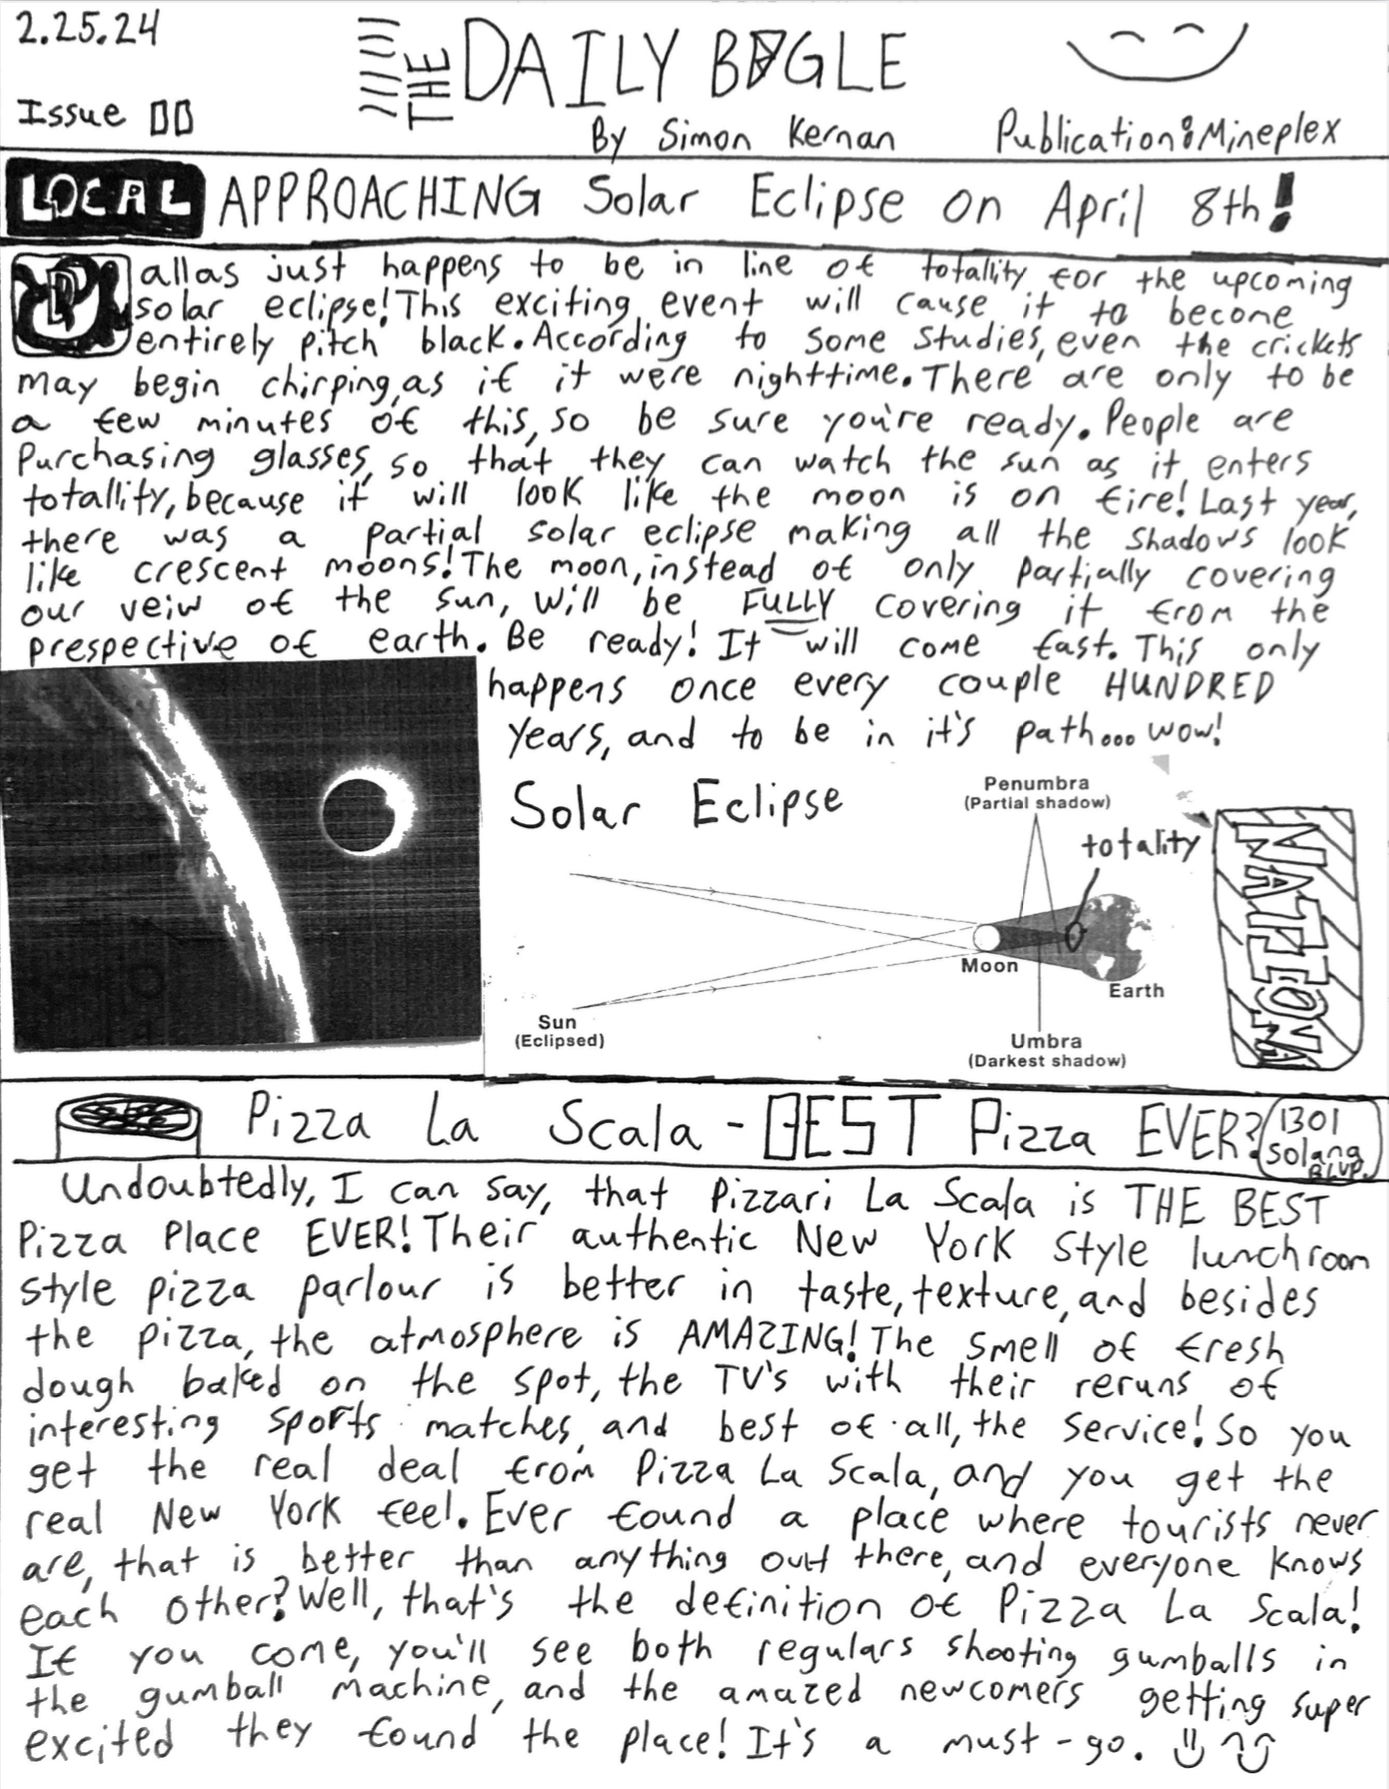 2.25.24
THE DAILY BUGLE
Issue 00
By Simon Kernan
Publication: Mineplex
LOCAL APPROACHING Solar Eclipse on April 8th!
Dallas just happens to be in line of totality for the upcoming
solar eclipse! This exciting event will cause it to become
entirely pitch black. According to some studies, even the crickets
may begin chirping, as if it were nighttime. There are only to be
a few minutes of this, so be sure you're ready. People are
purchasing glasses, so that they can watch the sun as it enters
totallity, because it will look like the moon is on fire! Last year,
there was a partial solar eclipse making all the shadows look
like crescent moons! The moon, instead of only partially covering
our veiw of the sun, will be FULLY covering it from the
prespective of earth. Be ready! It will come fast. This only
happens once every couple HUNDRED
years, and to be in it's path... wow!
Solar Eclipse
Penumbra
(Partial shadow)
totality
Moon
Earth
Sun
(Eclipsed)
Umbra
(Darkest shadow)
NATIONAL
Pizza La Scala - BEST Pizza EVER?
1301
Solang
BLVD.
Undoubtedly, I can say, that Pizzari La Scala is THE BEST
Pizza Place EVER! Their authentic New York style lunchroom
style pizza parlour is better in taste, texture, and besides
the pizza, the atmosphere is AMAZING! The smell of fresh
dough baked on the spot, the TV's with their reruns of
interesting sports matches, and best of all, the service! So you
get the real deal from Pizza La Scala, and you get the
real New York feel. Ever found a place where tourists never
are, that is better than anything out there, and everyone knows
each other? Well, that's the definition of Pizza La Scala!
If you come, you'll see both regulars shooting gumballs in
the gumball machine, and the amazed newcomers getting super
excited they found the place! It's a must-go.